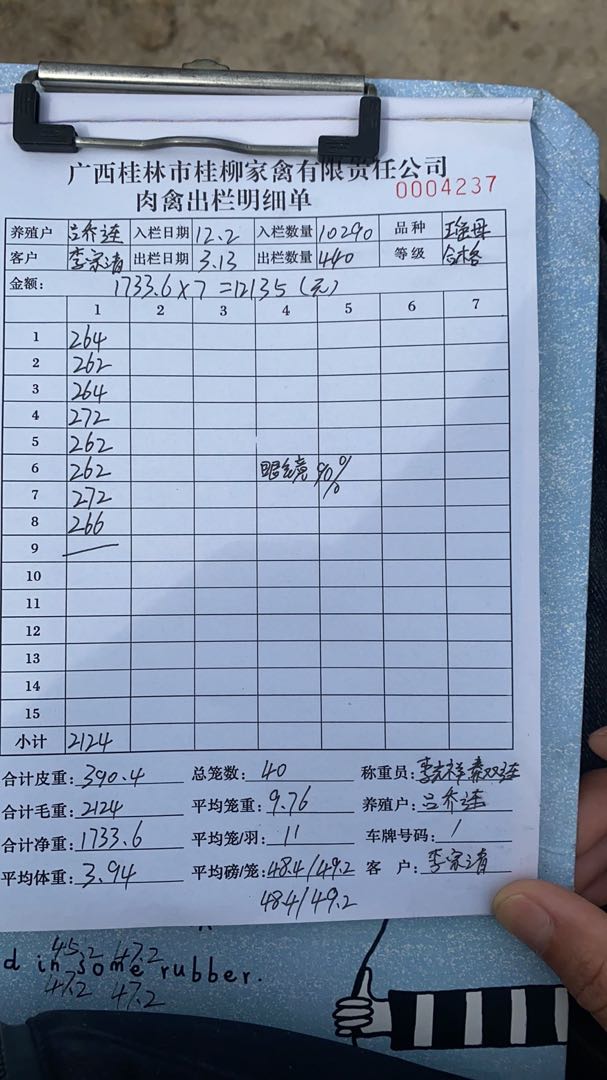 广西桂林市桂柳家禽有限责任公司
肉禽出栏明细单 0004237
养殖户 吕乔莲 入栏日期 12.2 入栏数量 10290 品种
客户 李家清 出栏日期 3.13 出栏数量 440 等级 合格
金额: 1733.6×7=12135(元)
1 2 3 4 5 6 7
1 264
2 262
3 264
4 272
5 262
6 262 眼镜 90%
7 272
8 266
9
10
11
12
13
14
15
小计 2124
合计皮重: 390.4 总笼数: 40 称重员:
合计毛重: 2124 平均笼重: 9.76 养殖户: 吕乔莲
合计净重: 1733.6 平均笼/羽: 11 车牌号码: /
平均体重: 3.94 平均磅/笼: 48.4/49.2 客 户: 李家清
48.4/49.2
45.2 47.2
d in some rubber.
47.2 47.2